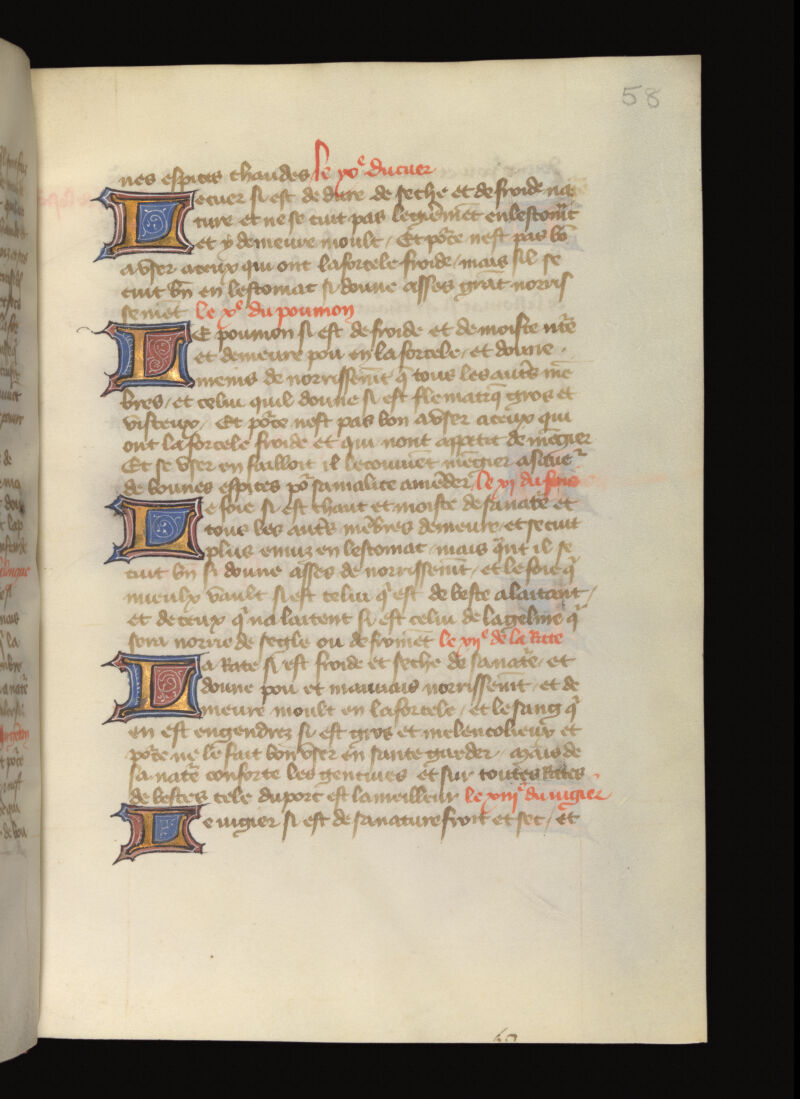 58
nes espices chaudes le ixe du cuer
Le cuer si est de dure de seche et de froide na
ture et ne se cuit pas legierem̃t en lestomac
et y demeure moult / Et por̃ce nest pas bõ
a vser a ceux qui ont la forcele froide / mais sil se
cuit bñ en lestomac si donne asses grãt norris
sem̃et le xe du poumon
LE poumon si est de froide et de moiste nãte
et demeure pou en la forcele / et donne
meins de norrissem̃t q̃ tous les aut̃s mẽ
bres / et celui quil donne si est flematiq̃ gros et
visteux / Et por̃ce nest pas bon a vser a ceux qui
ont la forcele froide et qui nont appetit de mẽgier
Et se vser en failloit il le couuẽt mẽgier
de bonnes espices por̃ sa malice amẽder le xi du foie
Le foie si est chaut et moiste de sa natẽ et
tous les aut̃s mẽbres demeure et se cuit
plus enuiz en lestomac mais q̃nt il se
cuit bñ si donne asses de norrissem̃t / et le foie q̃
mieulx vault si est celui q̃ est de beste alaitant /
et de ceux q̃ nalaitent si est celui de la geline q̃
sera norrie de segle ou de from̃et le xiie de la Rate
La Rate si est froide et seche de sa natẽ / et
donne pou et mauuais norrissem̃t / et de
meure moult en la forcele / et le sang q̃
en est engendrez si est gros et melencolieux et
por̃ce ne le fait bon vser en sante garder / Mais de
sa natẽ conforte les genciues et sur toutes Rates
de bestes cele du porc est la meilleur le xiiie du iugier
Le iugier si est de sa nature froit et sec / et